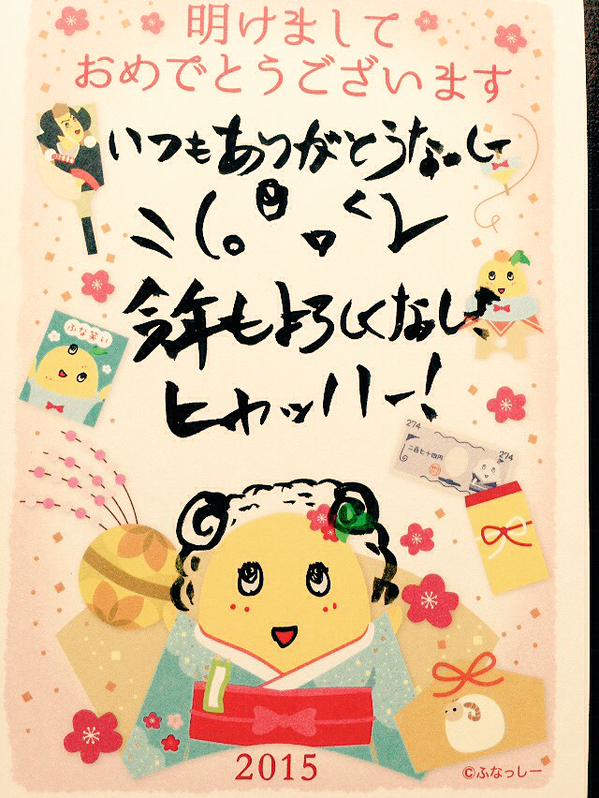 明けまして
おめでとうございます
いつもありがとうなっしー
ヾ(。゜▽、゜)ノ
今年もよろしくなしな
ヒャッハー!
ふな笑い
274
274
二百七十四円
2015
©ふなっしー